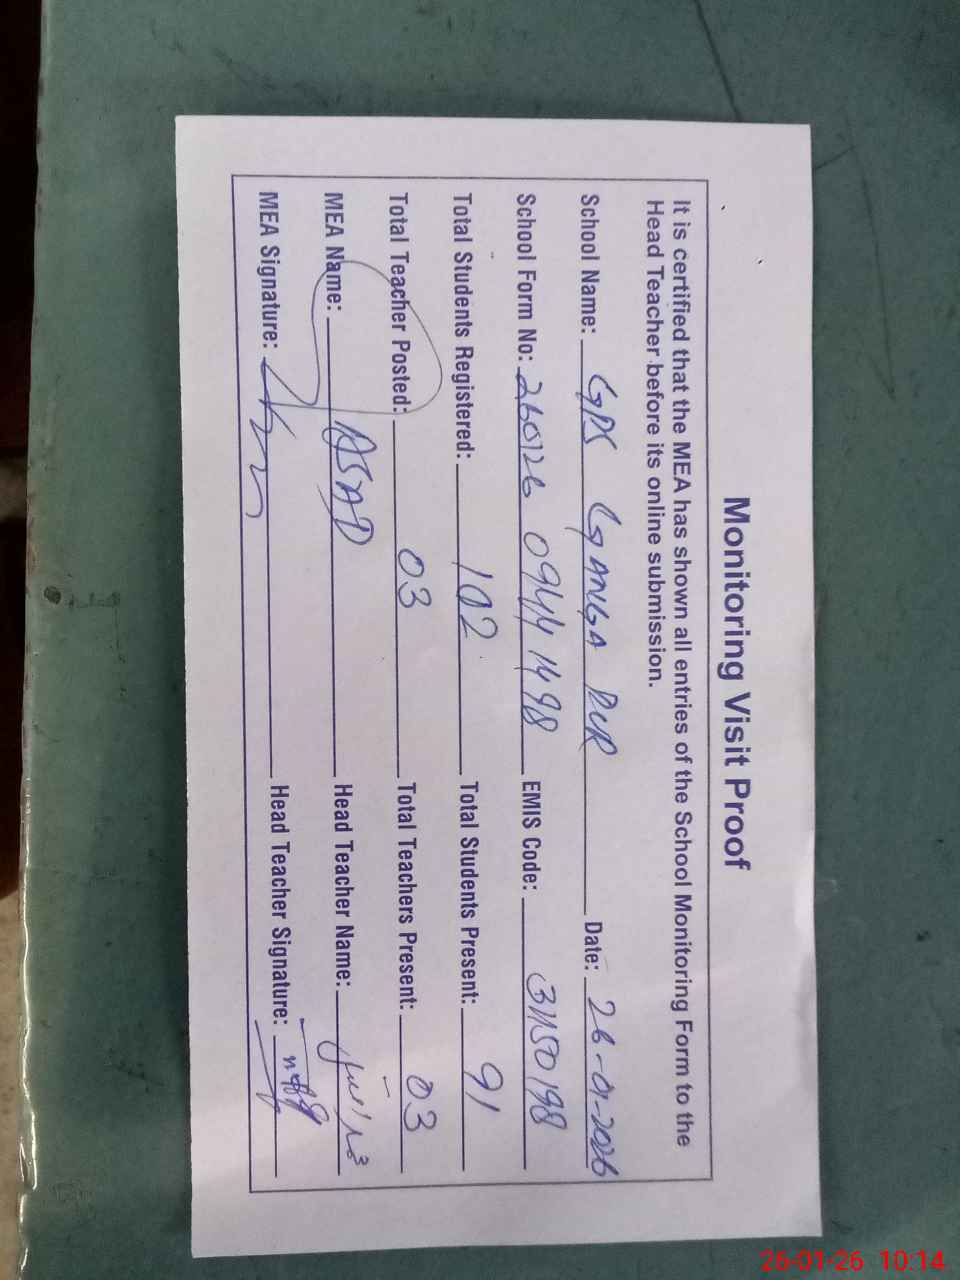 Monitoring Visit Proof
It is certified that the MEA has shown all entries of the School Monitoring Form to the
Head Teacher before its online submission.
School Name: GPS GANGA PUR Date: 26-01-2026
School Form No: 260126 09441498 EMIS Code: 31150198
Total Students Registered: 102 Total Students Present: 91
Total Teacher Posted: 03 Total Teachers Present: 03
MEA Name: ASAD Head Teacher Name:
MEA Signature: Head Teacher Signature:
26-01-26 10:14